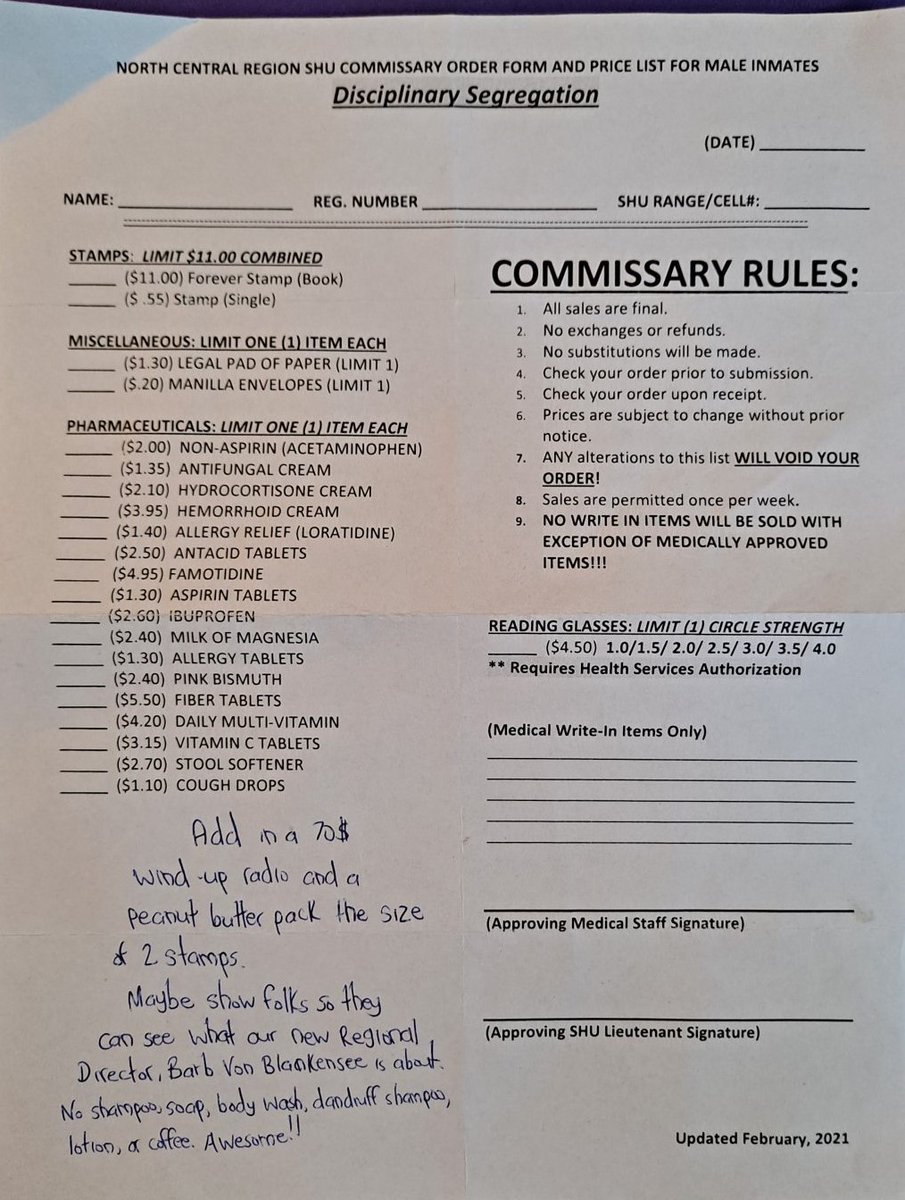 NORTH CENTRAL REGION SHU COMMISSARY ORDER FORM AND PRICE LIST FOR MALE INMATES
Disciplinary Segregation
(DATE) ____________
NAME: ____________ REG. NUMBER ____________ SHU RANGE/CELL#: ____________
STAMPS: LIMIT $11.00 COMBINED
_____ ($11.00) Forever Stamp (Book)
_____ ($ .55) Stamp (Single)
MISCELLANEOUS: LIMIT ONE (1) ITEM EACH
_____ ($1.30) LEGAL PAD OF PAPER (LIMIT 1)
_____ ($.20) MANILLA ENVELOPES (LIMIT 1)
PHARMACEUTICALS: LIMIT ONE (1) ITEM EACH
_____ ($2.00) NON-ASPIRIN (ACETAMINOPHEN)
_____ ($1.35) ANTIFUNGAL CREAM
_____ ($2.10) HYDROCORTISONE CREAM
_____ ($3.95) HEMORRHOID CREAM
_____ ($1.40) ALLERGY RELIEF (LORATIDINE)
_____ ($2.50) ANTACID TABLETS
_____ ($4.95) FAMOTIDINE
_____ ($1.30) ASPIRIN TABLETS
_____ ($2.60) IBUPROFEN
_____ ($2.40) MILK OF MAGNESIA
_____ ($1.30) ALLERGY TABLETS
_____ ($2.40) PINK BISMUTH
_____ ($5.50) FIBER TABLETS
_____ ($4.20) DAILY MULTI-VITAMIN
_____ ($3.15) VITAMIN C TABLETS
_____ ($2.70) STOOL SOFTENER
_____ ($1.10) COUGH DROPS
Add in a 70$
wind-up radio and a
peanut butter pack the size
of 2 stamps.
Maybe show folks so they
can see what our new Regional
Director, Barb Von Blankensee is about.
No shampoo, soap, body wash, dandruff shampoo,
lotion, or coffee. Awesome!!
COMMISSARY RULES:
1. All sales are final.
2. No exchanges or refunds.
3. No substitutions will be made.
4. Check your order prior to submission.
5. Check your order upon receipt.
6. Prices are subject to change without prior
notice.
7. ANY alterations to this list WILL VOID YOUR
ORDER!
8. Sales are permitted once per week.
9. NO WRITE IN ITEMS WILL BE SOLD WITH
EXCEPTION OF MEDICALLY APPROVED
ITEMS!!!
READING GLASSES: LIMIT (1) CIRCLE STRENGTH
_____ ($4.50) 1.0/1.5/ 2.0/ 2.5/ 3.0/ 3.5/ 4.0
** Requires Health Services Authorization
(Medical Write-In Items Only)
(Approving Medical Staff Signature)
(Approving SHU Lieutenant Signature)
Updated February, 2021